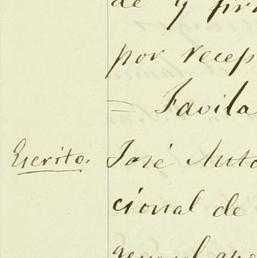 de y
por recep
= Favila
Escrito. José Anto
cional de
general